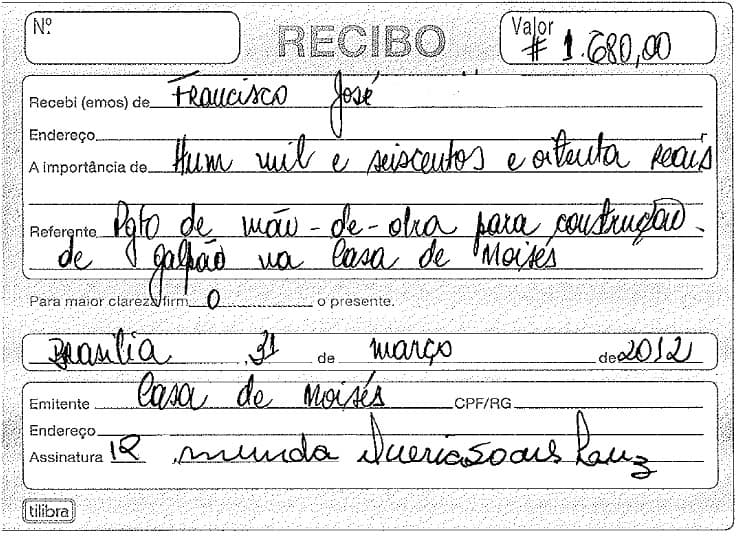 Nº
RECIBO
Valor
# 1.680,00
Recebi (emos) de Francisco José
Endereço
A importância de Hum mil e seiscentos e oitenta reais
Referente Pgto de mão-de-obra para construção
de galpão na Casa de Moisés
Para maior clareza firm o o presente.
Brasília, 31 de março de 2012
Emitente Casa de Moisés CPF/RG
Endereço
Assinatura
tilibra